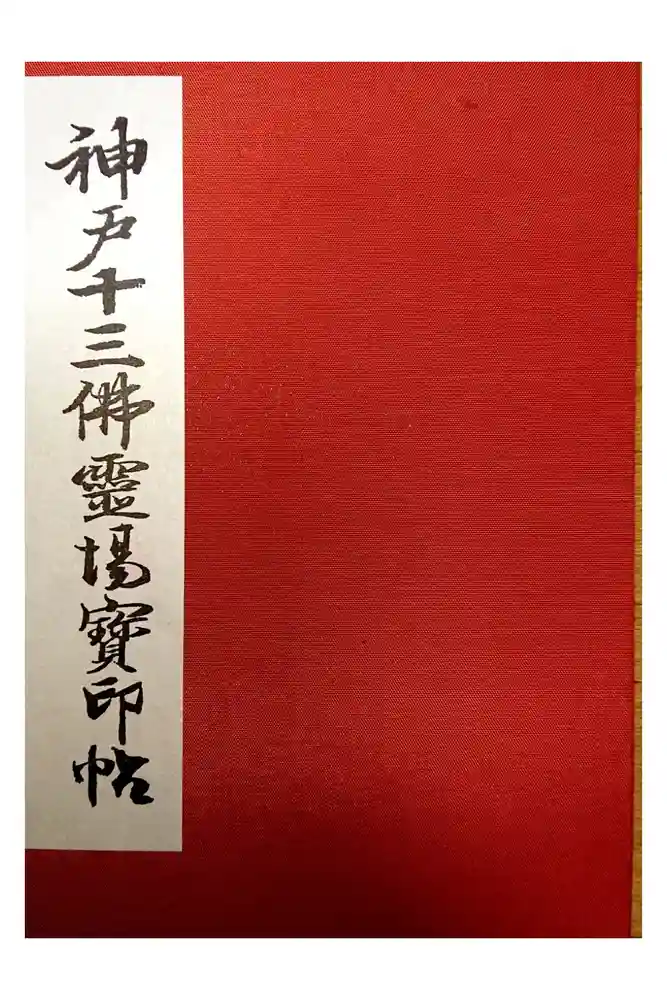 神戸十三佛靈場寶印帖